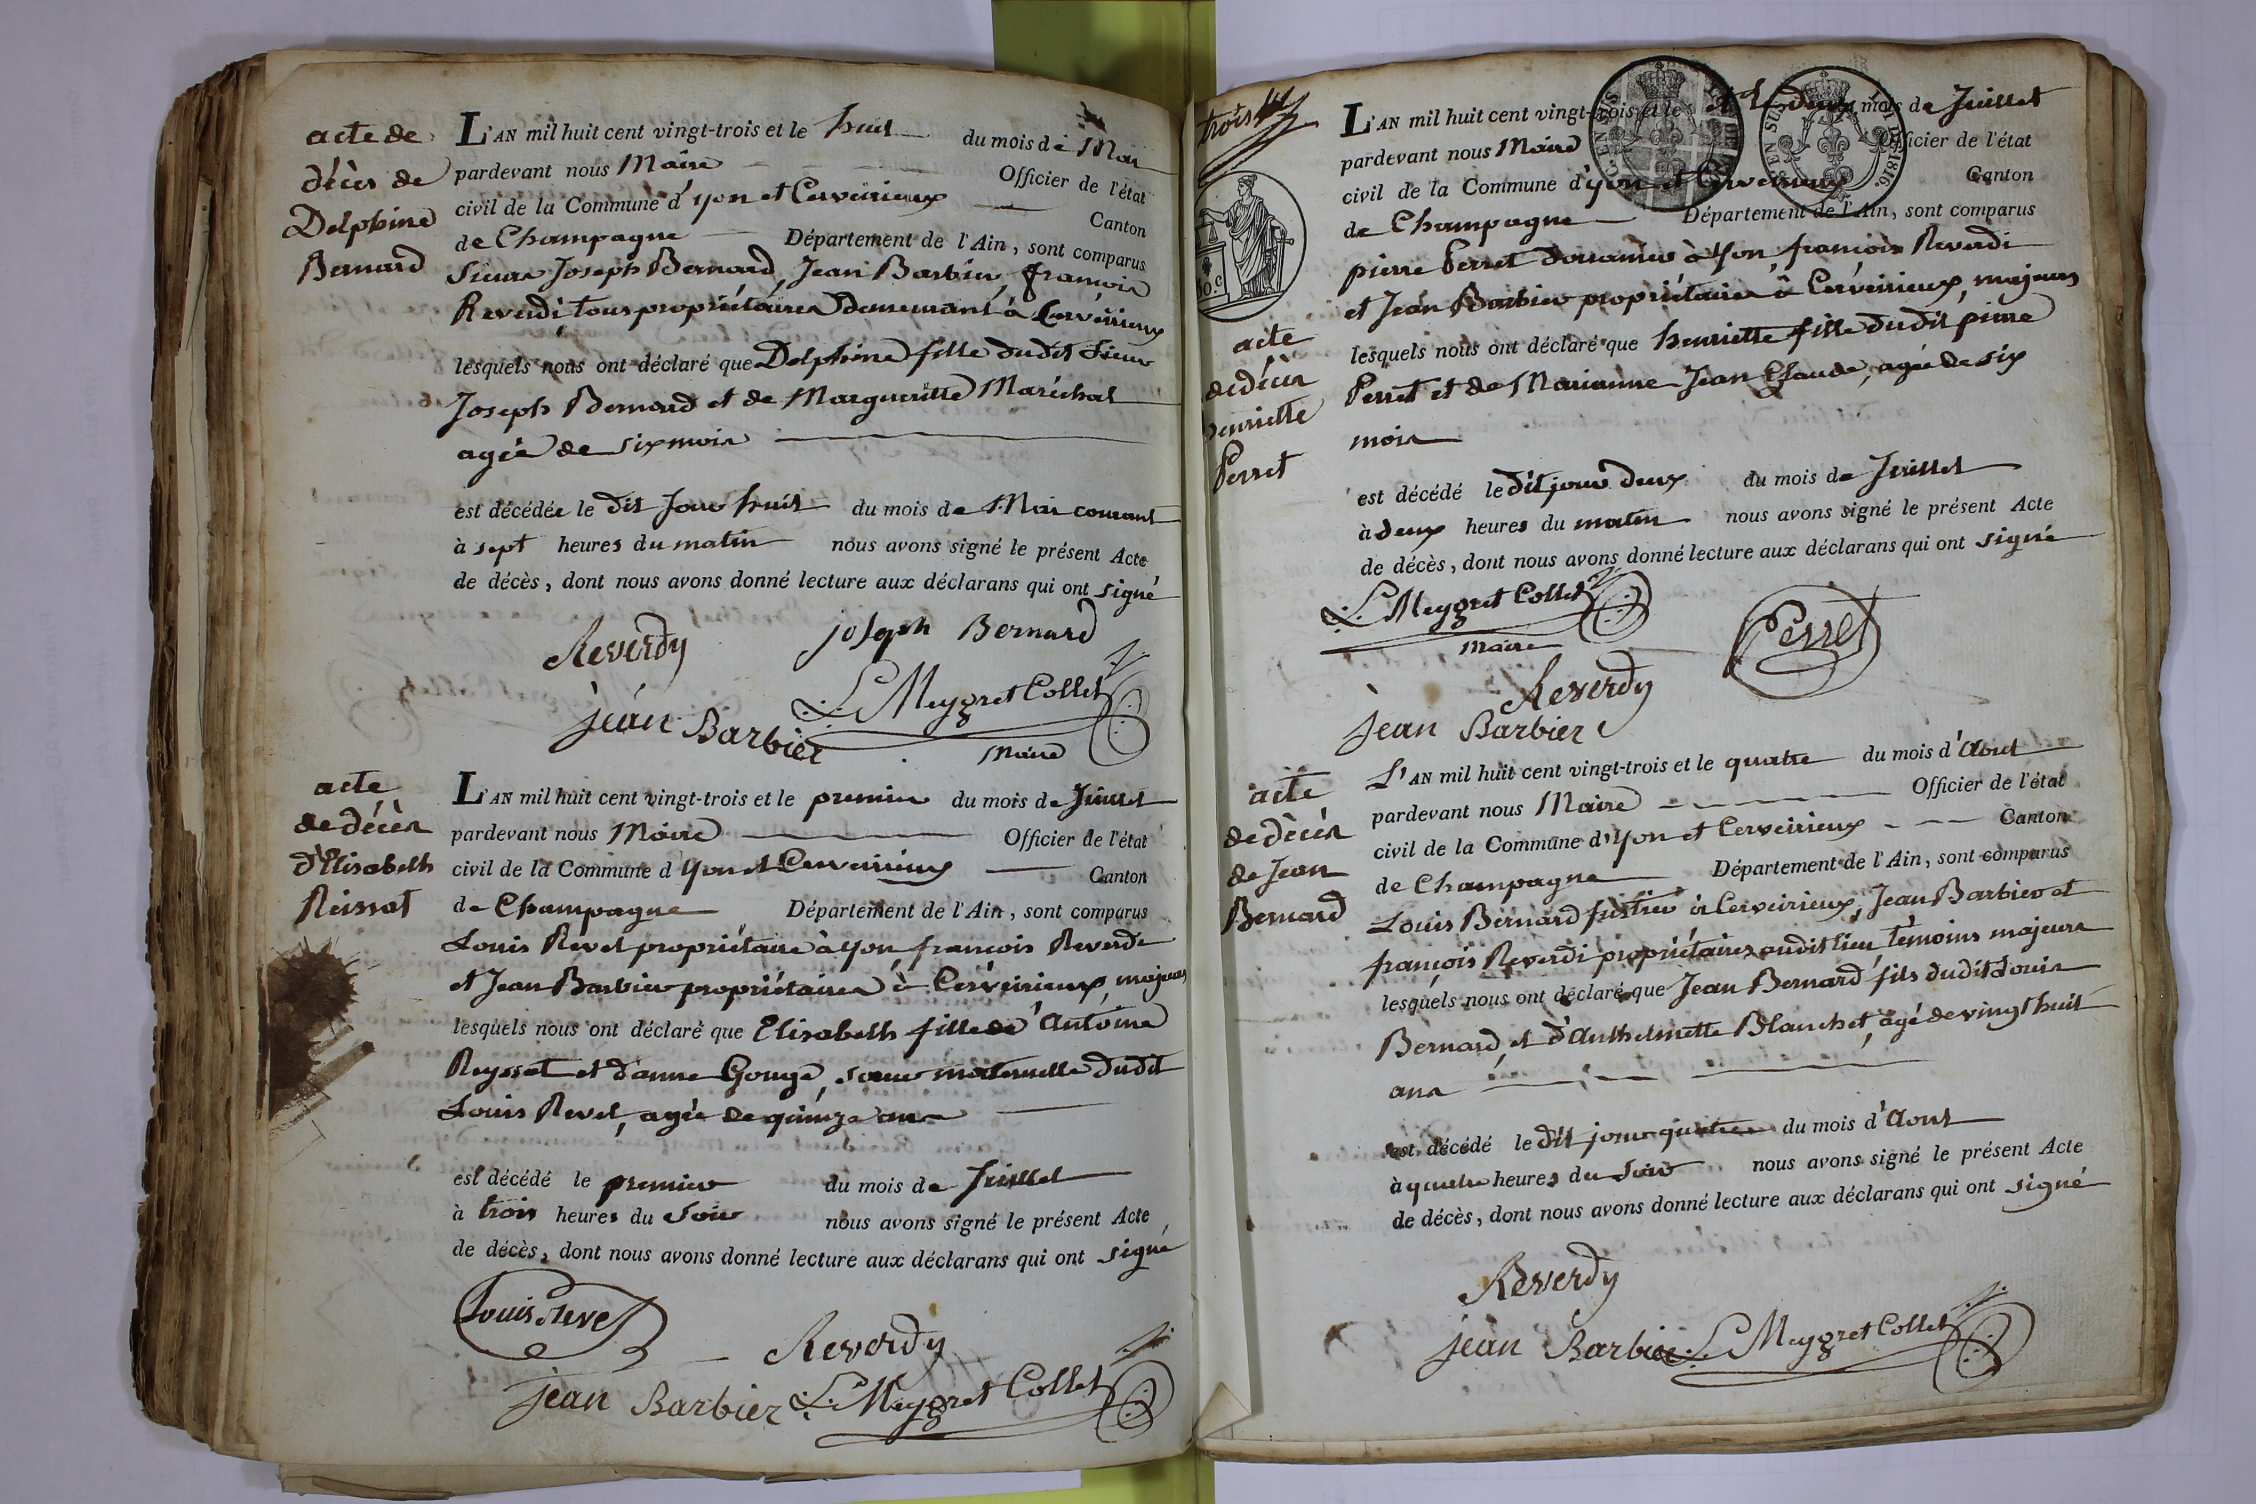 acte de
décès de
Delphine
Bernard
L'AN mil huit cent vingt-trois et le huit du mois de Mai
pardevant nous Maire Officier de l'état
civil de la Commune d'yon et Cerveirieux Canton
de Champagne Département de l'Ain, sont comparus
Sieurs Joseph Bernard, Jean Barbier, françois
Reverdi, tous propriétaires demeurant à Cerveirieux
lesquels nous ont déclaré que Delphine fille dudit Sieur
Joseph Bernard et de Margueritte Maréchal
agée de six mois
est décédée le dit Jour huit du mois de Mai courant
à sept heures du matin nous avons signé le présent Acte
de décès, dont nous avons donné lecture aux déclarans qui ont signé
Reverdy joseph Bernard
jean Barbier L Meygret Collet
Maire
acte
de décès
d'Elisabeth
Reissat
L'AN mil huit cent vingt-trois et le premier du mois de Juillet
pardevant nous Maire Officier de l'état
civil de la Commune d'yon et Cerveirieux Canton
de Champagne Département de l'Ain, sont comparus
Louis Revet propriétaire à yon, françois Reverdi
et Jean Barbier propriétaires à Cerveirieux, majeurs
lesquels nous ont déclaré que Elisabeth fille de Antoine
Reyssat et d'anne Gouge, soeur maternelle dudit
Louis Revet, agée de quinze ans
est décédé le premier du mois de Juillet
à trois heures du Soir nous avons signé le présent Acte
de décès, dont nous avons donné lecture aux déclarans qui ont signé
Louis Revet
Reverdy
jean Barbier L Meygret Collet
trois
30.c
acte
de décès
henriette
Perret
L'AN mil huit cent vingt-trois et le deux mois de Juillet
pardevant nous Maire Officier de l'état
civil de la Commune d'yon et Cerveirieux Canton
de Champagne Département de l'Ain, sont comparus
pierre Perret douanier à yon, françois Reverdi
et Jean Barbier propriétaires à Cerveirieux, majeurs
lesquels nous ont déclaré que henriette fille dudit pierre
Perret et de Marianne Jean Claude, agée de six
mois
est décédé le dit jour deux du mois de Juillet
à deux heures du matin nous avons signé le présent Acte
de décès, dont nous avons donné lecture aux déclarans qui ont signé
L Meygret Collet
Maire
Perret
Reverdy
jean Barbier
acte
de décès
de Jean
Bernard
L'AN mil huit cent vingt-trois et le quatre du mois d'Aout
pardevant nous Maire Officier de l'état
civil de la Commune d'yon et Cerveirieux Canton
de Champagne Département de l'Ain, sont comparus
Louis Bernard à Cerveirieux, Jean Barbier et
françois Reverdi propriétaires audit lieu, témoins majeurs
lesquels nous ont déclaré que Jean Bernard fils dudit Louis
Bernard, et d'Anthelmette Blanchet, agé de vingt huit
ans
est décédé le dit jour quatre du mois d'Aout
à quatre heures du Soir nous avons signé le présent Acte
de décès, dont nous avons donné lecture aux déclarans qui ont signé
Reverdy
jean Barbier L Meygret Collet